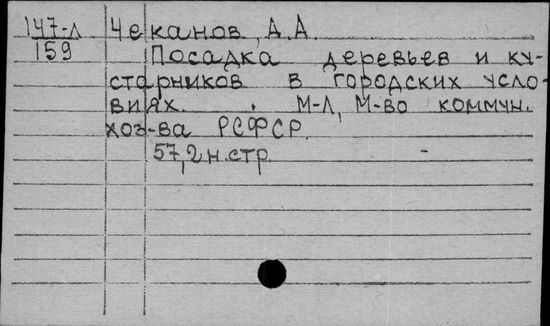 147-л Чеканов, А.А.
159 Посадка деревьев и ку-
старников в городских усло-
виях. М-Л, М-во коммун.
хоз-ва РСФСР.
57,2 н.стр. -